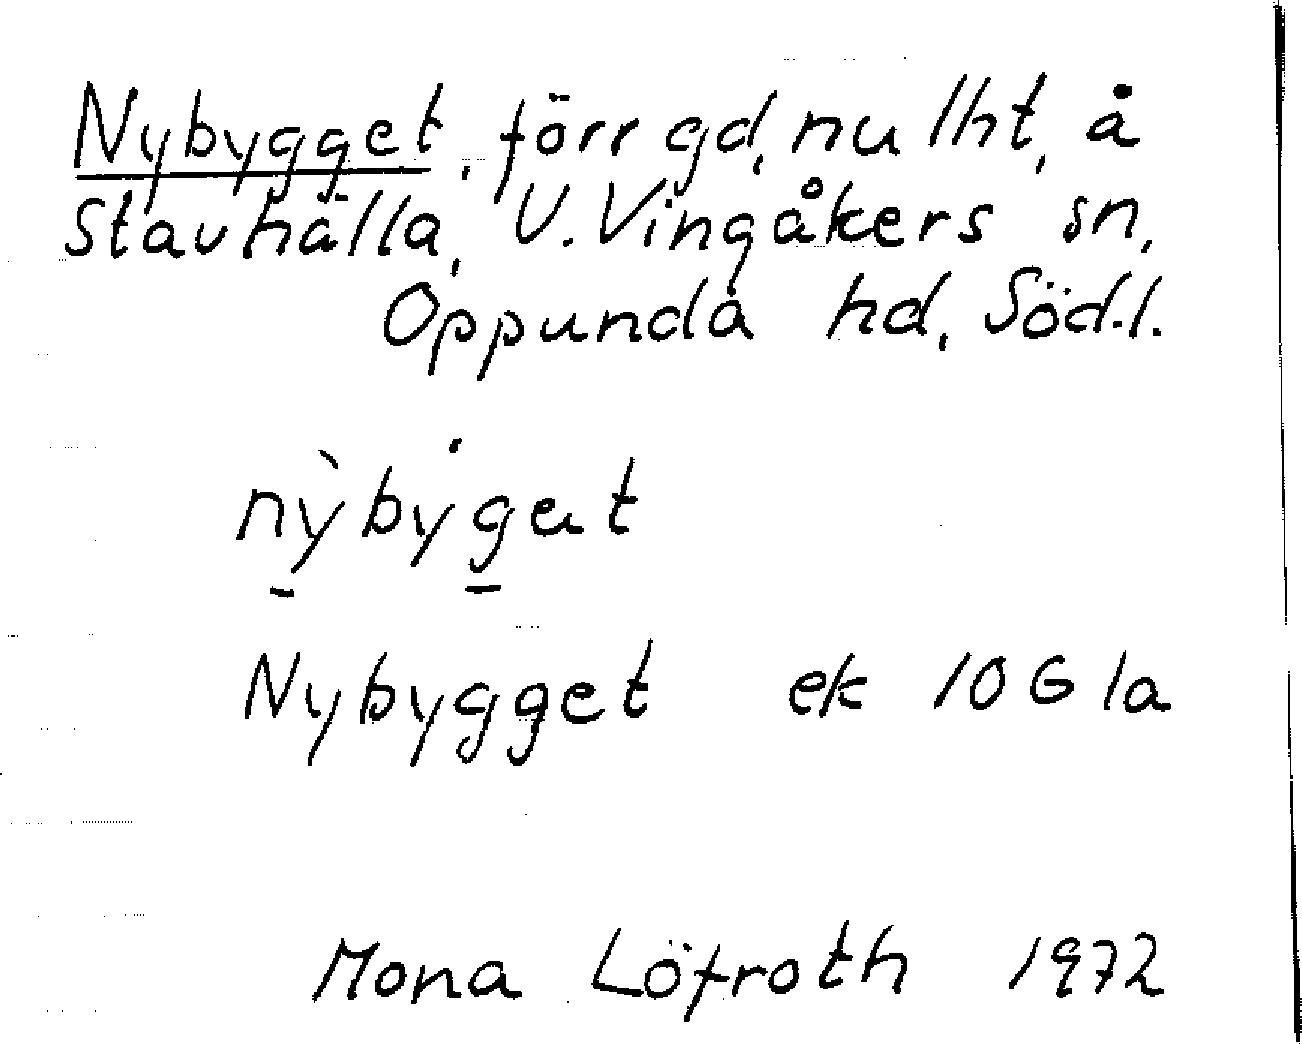 Nybygget, förr gd, nu lht, å
Stavhälla, V. Vingåkers sn,
Oppunda hd, Söd.l.
nỳbyget
Nybygget ek 10G 1a
Mona Löfroth 1972